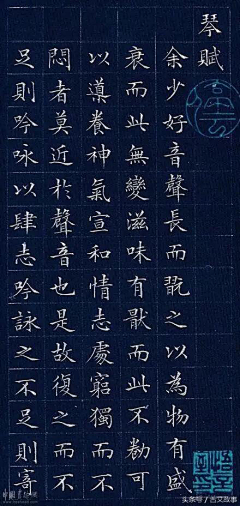 琴賦
余少好音聲長而翫之以為物有盛
衰而此無變滋味有猒而此不勌可
以導養神氣宣和情志處窮獨而不
悶者莫近於聲音也是故復之而不
足則吟咏以肆志吟詠之不足則寄